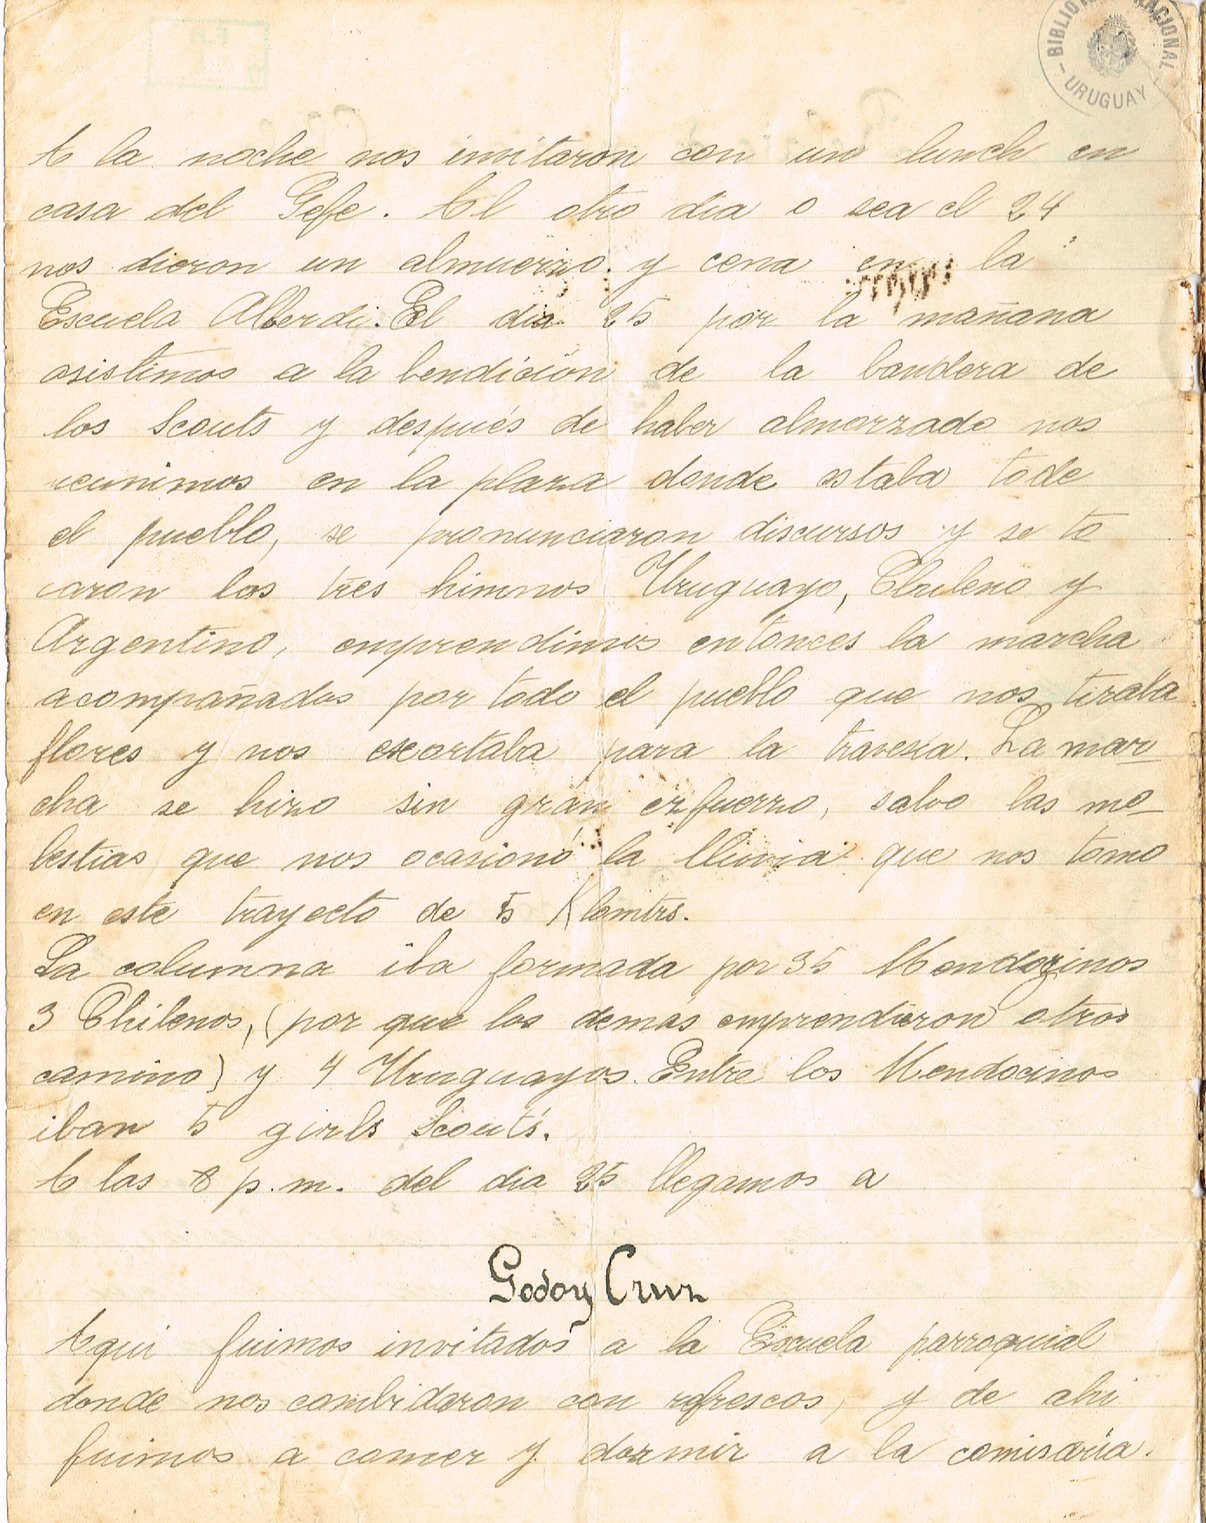 BIBLIOTECA NACIONAL
- URUGUAY -
A la noche nos invitaron con un lunch en
casa del Gefe. Al otro dia o sea el 24
nos dieron un almuerzo y cena en la
Escuela Alberdi. El dia 25 por la mañana
asistimos a la bendición de la bandera de
los Scouts y después de haber almorzado nos
reunimos en la plaza donde estaba todo
el pueblo, se pronunciaron discursos y se to
caron los tres himnos Uruguayo, Chileno y
Argentino, emprendimos entonces la marcha
acompañados por todo el pueblo que nos tiraba
flores y nos escortaba para la travesia. La mar
cha se hizo sin gran ezfuerzo, salvo las mo-
lestias que nos ocasionó la lluvia que nos tomo
en este trayecto de 5 Klomtrs.
La columna iba formada por 35 Mendozinos
3 Chilenos, (por que los demás emprendieron otros
camino) y 4 Uruguayos. Entre los Mendocinos
iban 5 girls Scouts.
A las 8 p.m. del dia 25 llegamos a
Godoy Cruz
Aqui fuimos invitados a la Escuela parroquial
donde nos combidaron con refrescos, y de ahi
fuimos a comer y dormir a la comisaria.